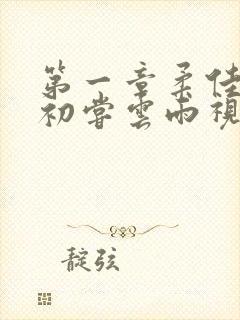 第一章柔佳
初尝雲雨視
靛弦